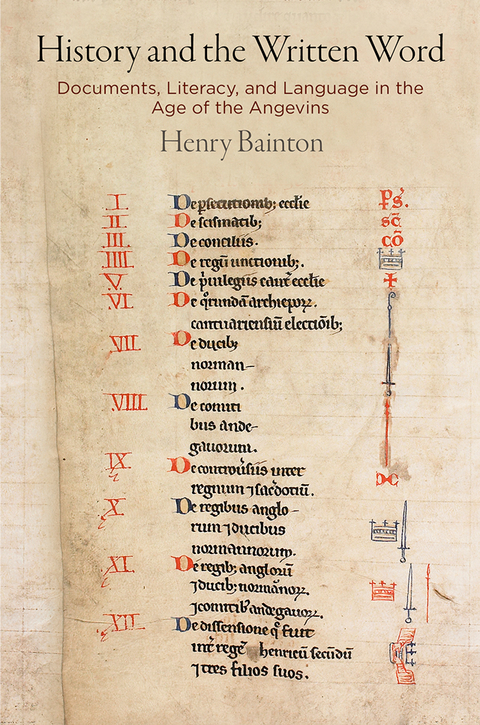 History and the Written Word
Documents, Literacy, and Language in the
Age of the Angevins
Henry Bainton
I. De psecutionib; ecclie ps̄.
II. De scismatib; sc̄
III. De conciliis. cō
IIII. De regū unctionib;.
V. De p̓uilegiis cant̓ ecclie
VI De q̓rundā archiepoꝝ.
cantuariensiū electiōib;
VII De ducib;
norman-
norum.
VIII. De comiti
bus ande-
gauorum.
IX. De controu̓siis inter
regnum ⁊ sac̓dotiū.
X. De regibus anglo-
rum ⁊ ducibus
normannorum.
XI. De regib; anglorū
⁊ ducib; normānoꝝ.
⁊ comitib; andegauoꝝ.
XII. De dissensione q̓ fuit
int̓ regē henricū secūdū
⁊ tres filios suos.